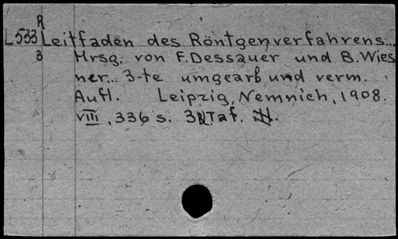 R
L533 Leitfaden des Röntgenverfahrens...
3 Hrsg. von F. Dessauer und B. Wies
ner... 3-te umgearb und verm.
Aufl. Leipzig, Nemnich, 1908.
VIII, 336 s. 3 Taf.